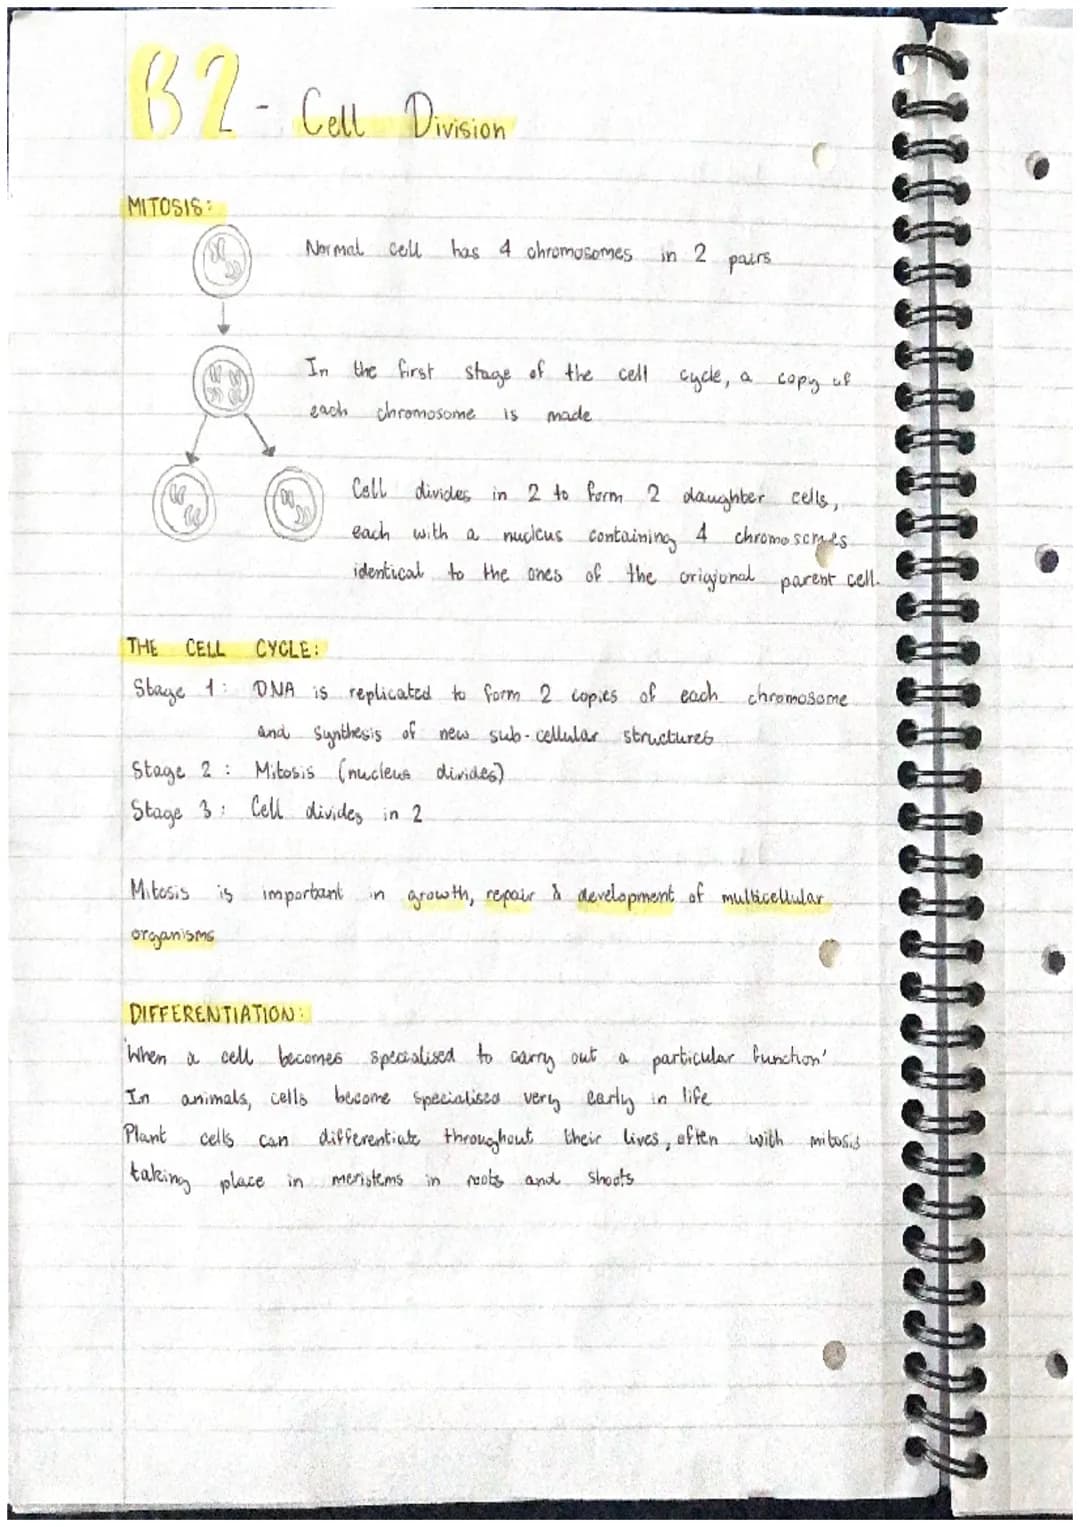 B2 - Cell Division
MITOSIS:
Normal cell has 4 chromosomes in 2 pairs
In the first stage of the cell cycle, a copy of
each chromosome is made
Cell divides in 2 to form 2 daughter cells,
each with a nucleus containing 4 chromosomes
identical to the ones of the origional parent cell.
THE CELL CYCLE:
Stage 1: DNA is replicated to form 2 copies of each chromosome
and synthesis of new sub-cellular structures
Stage 2: Mitosis (nucleus divides)
Stage 3: Cell divides in 2
Mitosis is important in growth, repair & development of multicellular
organisms
DIFFERENTIATION:
'When a cell becomes specialised to carry out a particular function'
In animals, cells become specialised very early in life
Plant cells can differentiate throughout their lives, often with mitosis
taking place in meristems in roots and shoots